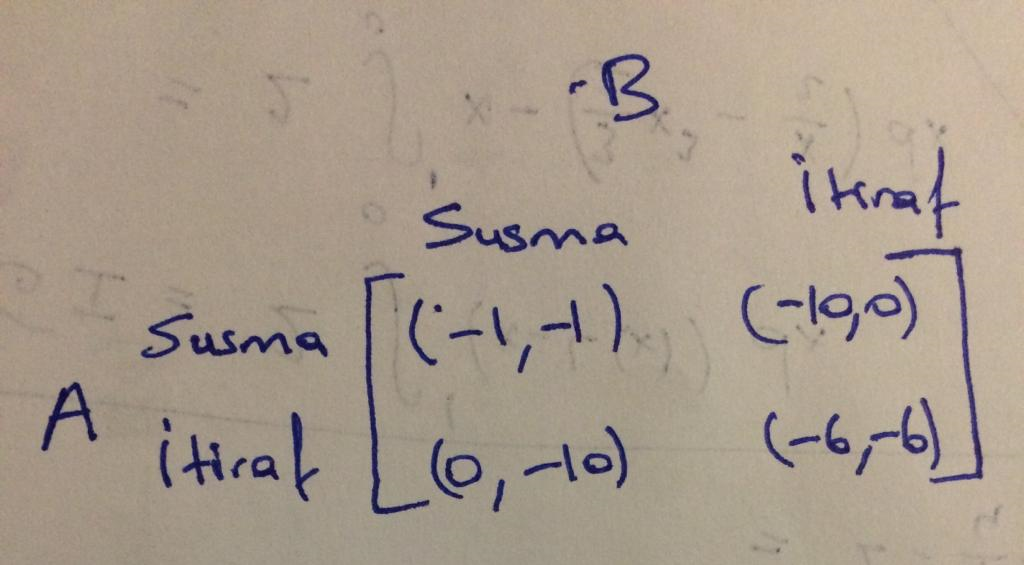 B
Susma itiraf
Susma (-1,-1) (-10,0)
A
itiraf (0,-10) (-6,-6)